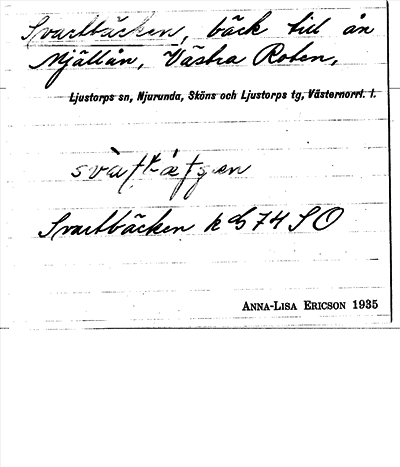 Svartbäcken, bäck till ån
Mjällån, Västra Roten,
Ljustorps sn, Njurunda, Sköns och Ljustorps tg, Västernorrl. l.
Svartbäcken k G74 SO
ANNA-LISA ERICSON 1935